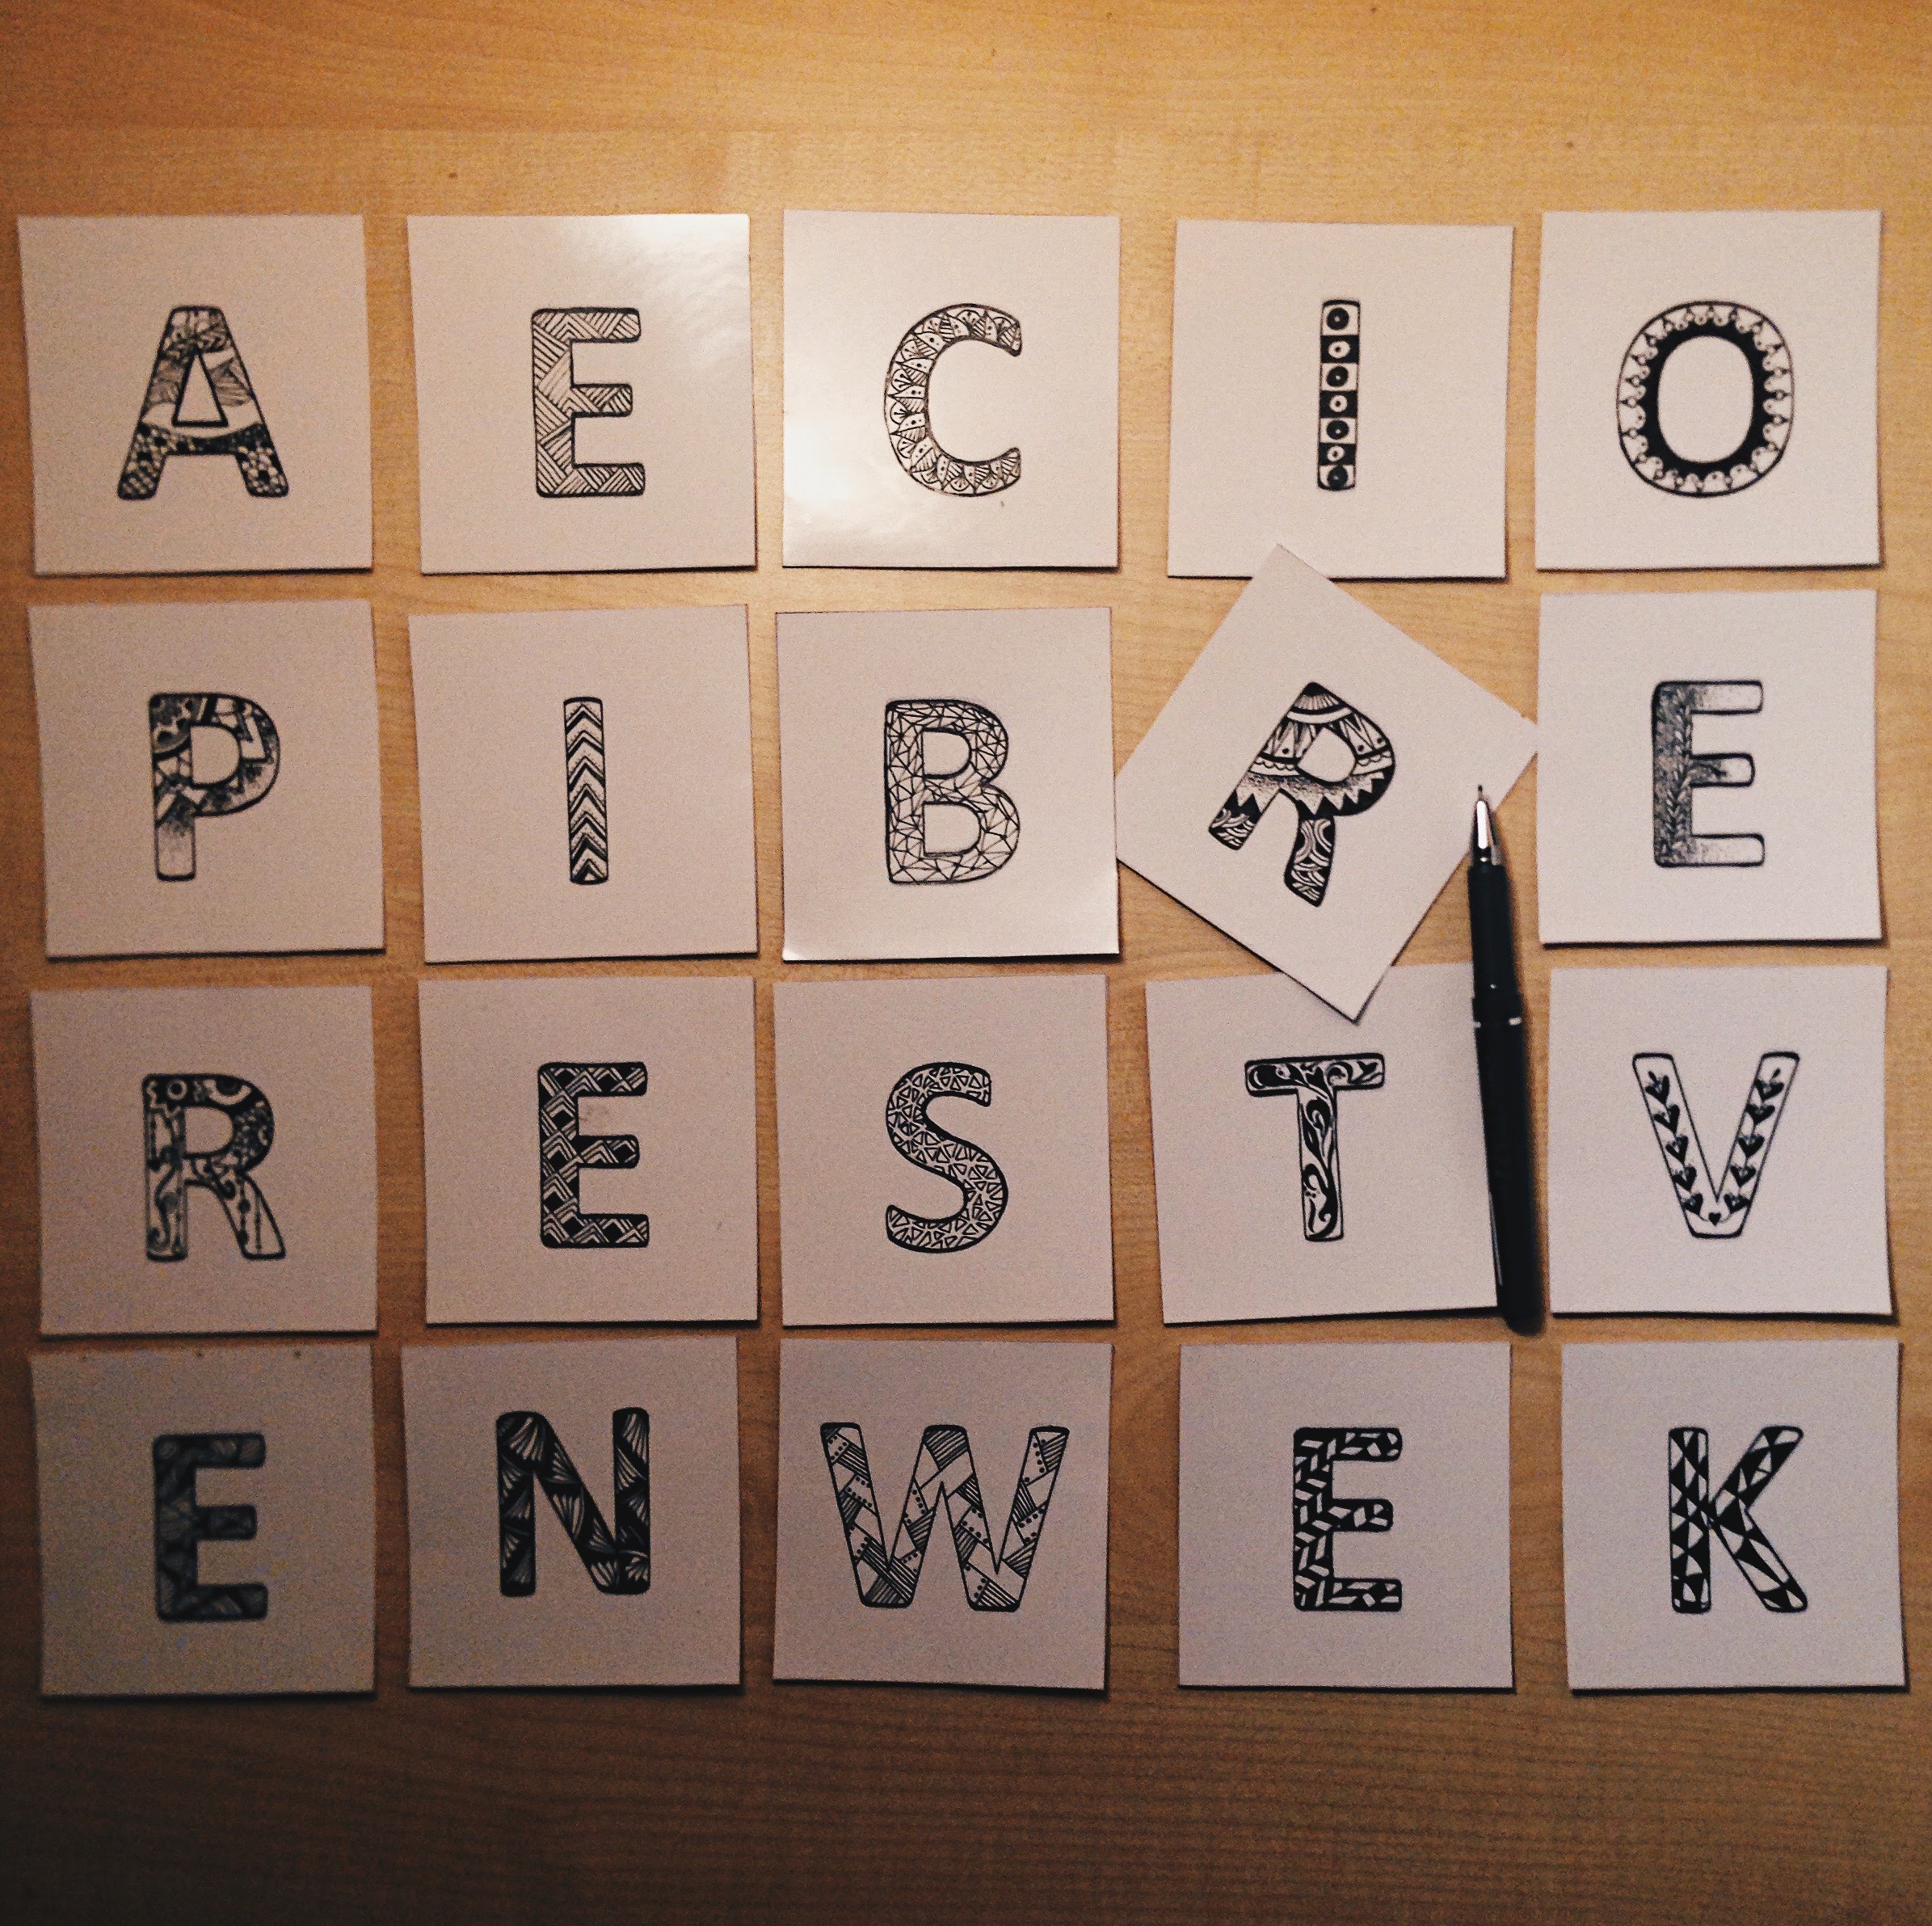 A E C I O
P I B R E
R E S T V
E N W E K